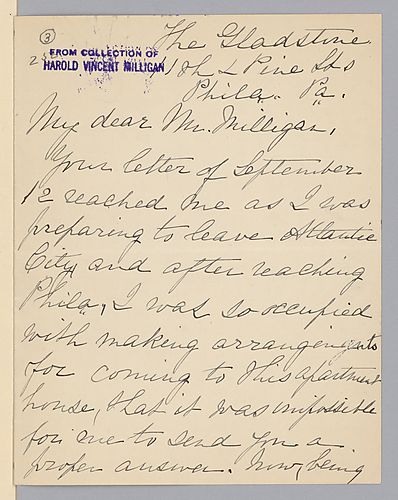 3
FROM COLLECTION OF
HAROLD VINCENT MILLIGAN
The Gladstone
11th & Pine Sts
Phila. Pa.
My dear Mr. Milligan,
Your letter of September
12 reached me as I was
preparing to leave Atlantic
City, and after reaching
Phila, I was so occupied
with making arrangements
for coming to this apartment
house, that it was impossible
for me to send you a
proper answer. Now, being